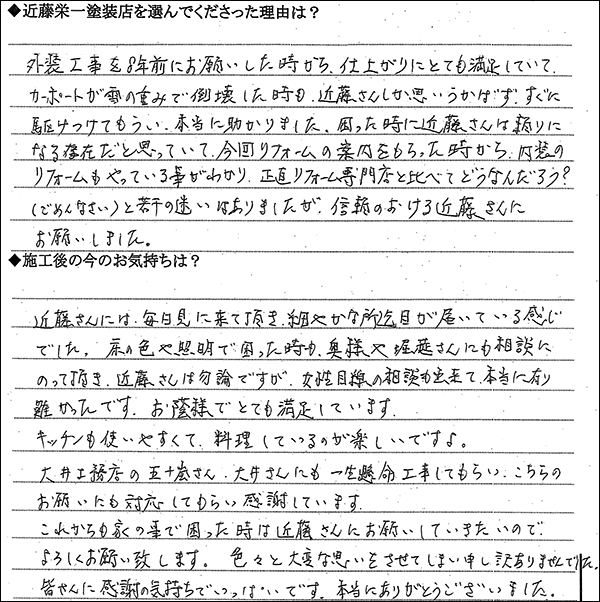 ◆近藤栄一塗装店を選んでくださった理由は？
外装工事を8年前にお願いした時から、仕上がりにとても満足していて、
カーポートが雪の重みで倒壊した時も、近藤さんしか思いうかばず、すぐに
駆けつけてもらい、本当に助かりました。困った時に近藤さんは頼りに
なる存在だと思っていて、今回リフォームの案内をもらった時から、内装の
リフォームもやっている事がわかり、正直リフォーム専門店と比べてどうなんだろう？
（ごめんなさい）と若干の迷いはありましたが、信頼のおける近藤さんに
お願いしました。
◆施工後の今のお気持ちは？
近藤さんには、毎日見に来て頂き、細やかな所迄目が届いている感じ
でした。床の色や照明で困った時も、奥様や堀越さんにも相談に
のって頂き、近藤さんは勿論ですが、女性目線の相談も出来て、本当に有り
難かったです。お蔭様でとても満足しています。
キッチンも使いやすくて、料理しているのが楽しいですよ。
大井工務店の五十嵐さん、大井さんにも一生懸命工事してもらい、こちらの
お願いにも対応してもらい感謝しています。
これからも家の事で困った時は近藤さんにお願いしていきたいので、
よろしくお願い致します。色々と大変な思いをさせてしまい申し訳ありませんでした。
皆さんに感謝の気持ちでいっぱいです。本当にありがとうございました。